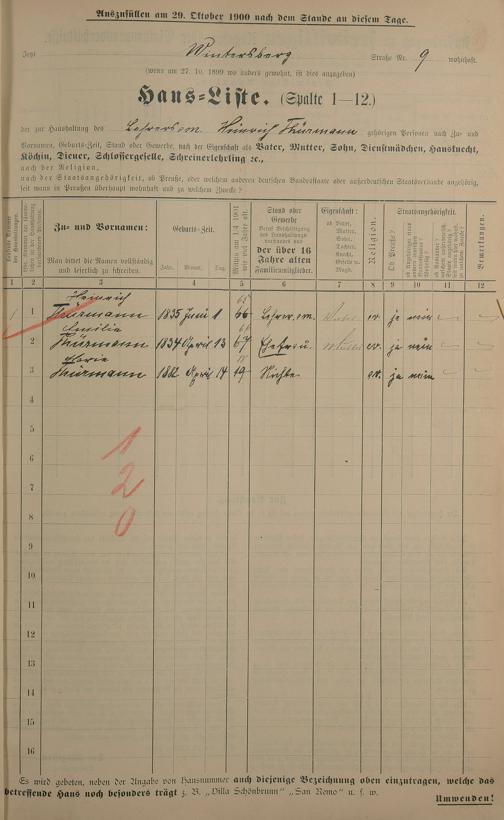 Auszufüllen am 29. Oktober 1900 nach dem Stande an diesem Tage.
Jetzt Wintersberg Straße Nr. 9 wohnhaft.
(wenn am 27. 10. 1899 wo anders gewohnt, ist dies anzugeben)
Haus-Liste. (Spalte 1—12.)
der zur Haushaltung des Lehrers em. Heinrich Thürmann gehörigen Personen nach Zu- und
Vornamen, Geburts-Zeit, Stand oder Gewerbe, nach der Eigenschaft als Vater, Mutter, Sohn, Dienstmädchen, Hausknecht,
Köchin, Diener, Schlossergeselle, Schreinerlehrling ec.,
nach der Religion,
nach der Staatsangehörigkeit, ob Preuße, oder welchem anderen deutschen Bundesstaate oder außerdeutschen Staatsverbande angehörig,
seit wann in Preußen überhaupt wohnhaft und zu welchem Zwecke?
Zu- und Vornamen:
Man bittet die Namen vollständig
und leserlich zu schreiben.
Geburts-Zeit.
Jahr. Monat. Tag.
Mithin am 1/4 1901
wie viel Jahre alt.
Stand oder
Gewerbe
der über 16
Jahre alten
Familienmitglieder.
Eigenschaft:
ob Vater,
Mutter,
Sohn,
Tochter,
Knecht,
Geselle
Magd.
Religion.
Staatsangehörigkeit.
Ob Preuße?
Bemerkungen.
1 2 3 4 5 6 7 8 9 10 11 12
Heinrich 65
1 1 Thürmann 1835 Juni 1 66 Lehrer em. Vater ev. ja nein
Emilie 66
2 Thürmann 1834 April 13 67 Ehefrau. Mutter ev. ja nein
Marie
3 Thürmann 1882 April 14 19 Nichte ev. ja nein
4
5
6
7
8
9
10
11
12
13
14
15
16
1
2
0
Es wird gebeten, neben der Angabe von Hausnummer auch diejenige Bezeichnung oben einzutragen, welche das
betreffende Haus noch besonders trägt z. B. „Villa Schönbrunn“ „San Remo“ u. s. w.
Umwenden!